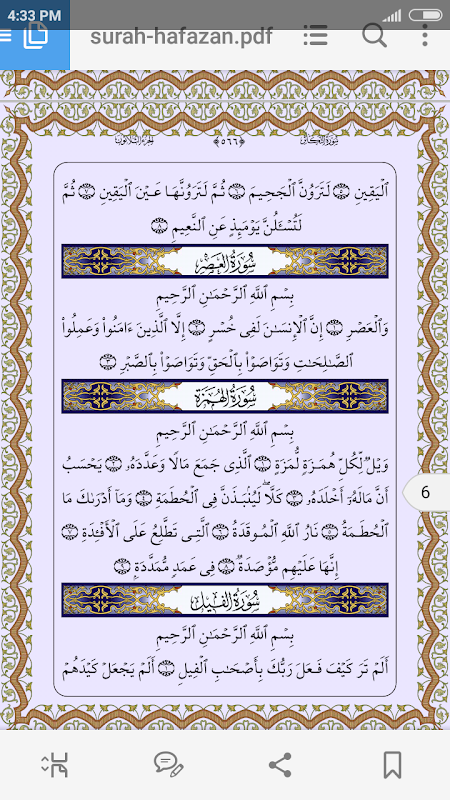 4:33 PM
surah-hafazan.pdf
سُورَةُ التَّكَاثُرِ ﴿٥٦٦﴾ الجُزْءُ الثَّلَاثُونَ
ٱلْيَقِينِ ۝٥ لَتَرَوُنَّ ٱلْجَحِيمَ ۝٦ ثُمَّ لَتَرَوُنَّهَا عَيْنَ ٱلْيَقِينِ ۝٧ ثُمَّ
لَتُسْـَٔلُنَّ يَوْمَئِذٍ عَنِ ٱلنَّعِيمِ ۝٨
سُورَةُ العَصْرِ
بِسْمِ ٱللَّهِ ٱلرَّحْمَـٰنِ ٱلرَّحِيمِ
وَٱلْعَصْرِ ۝١ إِنَّ ٱلْإِنسَـٰنَ لَفِى خُسْرٍ ۝٢ إِلَّا ٱلَّذِينَ ءَامَنُوا۟ وَعَمِلُوا۟
ٱلصَّـٰلِحَـٰتِ وَتَوَاصَوْا۟ بِٱلْحَقِّ وَتَوَاصَوْا۟ بِٱلصَّبْرِ ۝٣
سُورَةُ الهُمَزَةِ
بِسْمِ ٱللَّهِ ٱلرَّحْمَـٰنِ ٱلرَّحِيمِ
وَيْلٌ لِّكُلِّ هُمَزَةٍ لُّمَزَةٍ ۝١ ٱلَّذِى جَمَعَ مَالًا وَعَدَّدَهُۥ ۝٢ يَحْسَبُ
أَنَّ مَالَهُۥٓ أَخْلَدَهُۥ ۝٣ كَلَّا ۖ لَيُنۢبَذَنَّ فِى ٱلْحُطَمَةِ ۝٤ وَمَآ أَدْرَىٰكَ مَا
ٱلْحُطَمَةُ ۝٥ نَارُ ٱللَّهِ ٱلْمُوقَدَةُ ۝٦ ٱلَّتِى تَطَّلِعُ عَلَى ٱلْأَفْـِٔدَةِ ۝٧
إِنَّهَا عَلَيْهِم مُّؤْصَدَةٌ ۝٨ فِى عَمَدٍ مُّمَدَّدَةٍۭ ۝٩
سُورَةُ الفِيلِ
بِسْمِ ٱللَّهِ ٱلرَّحْمَـٰنِ ٱلرَّحِيمِ
أَلَمْ تَرَ كَيْفَ فَعَلَ رَبُّكَ بِأَصْحَـٰبِ ٱلْفِيلِ ۝١ أَلَمْ يَجْعَلْ كَيْدَهُمْ
6